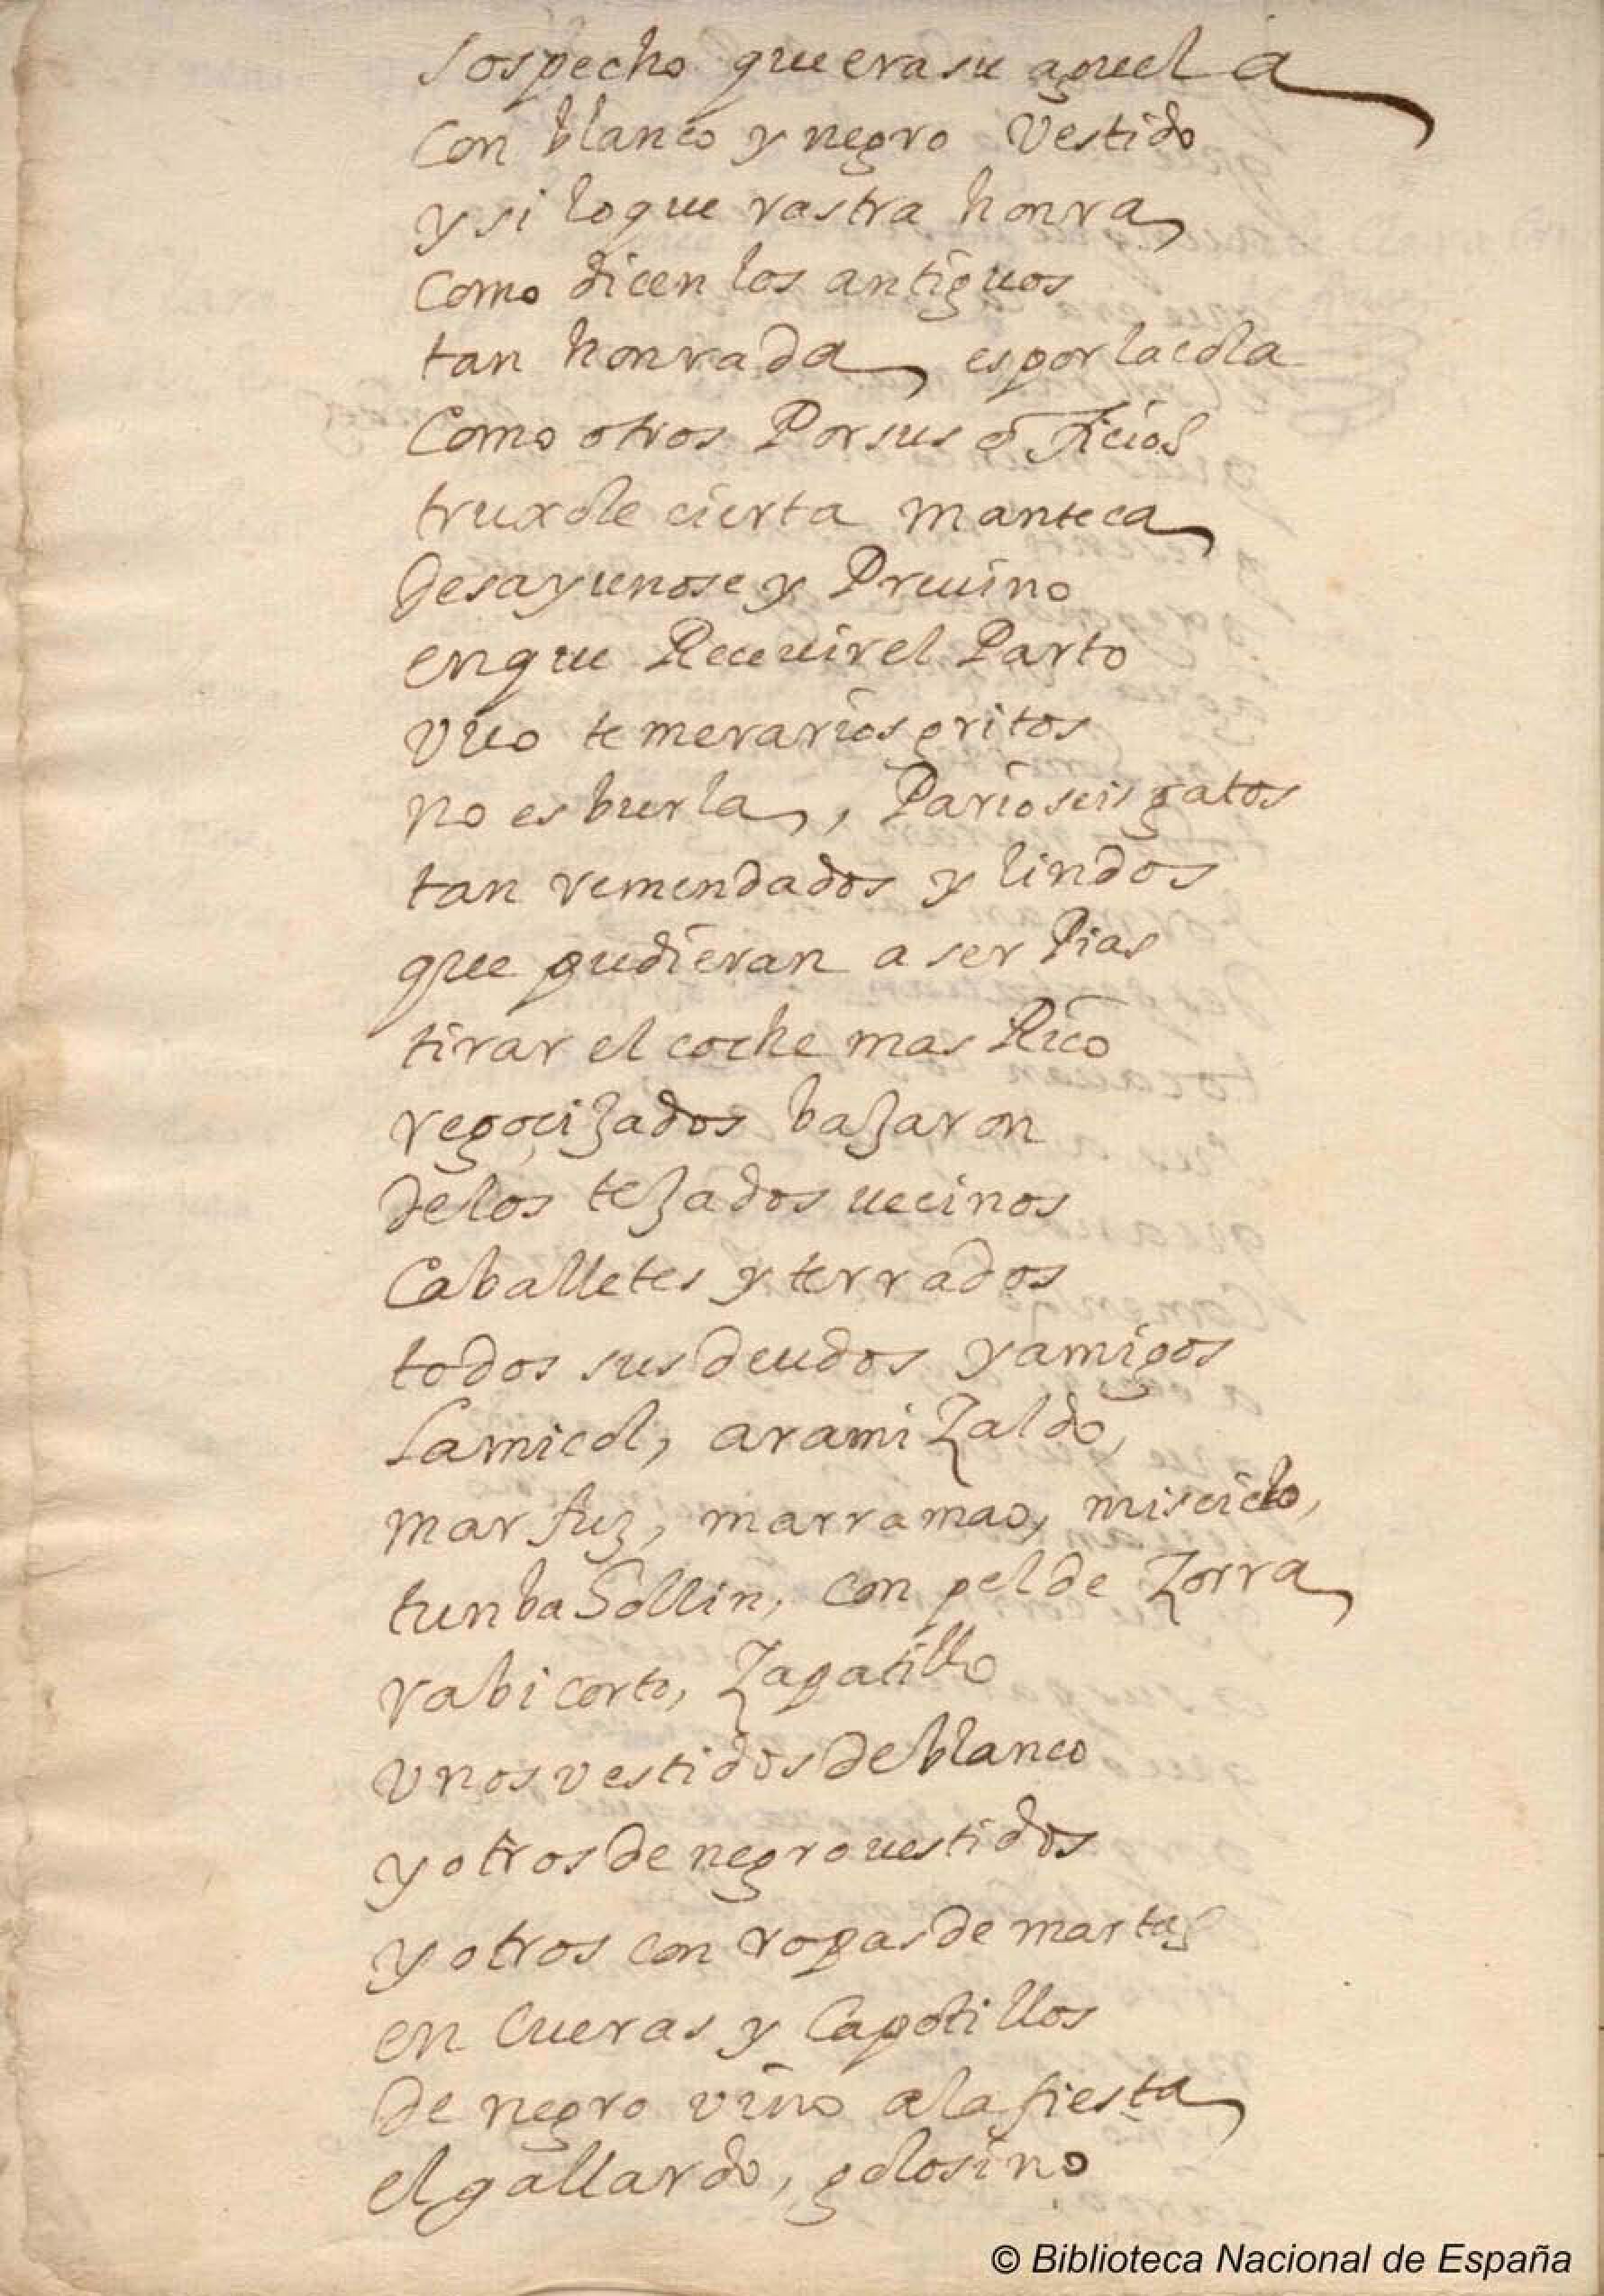 sospecho que era su aguela
con blanco y negro vestido
y si lo que rastra honra
como dicen los antiguos
tan honrada es por la cola
como otros Por sus oficios
truxole cierta manteca
desayunose y Preuino
en que Receuir el Parto
vuo temerarios gritos
no es burla, Pario seis gatos
tan remendados y lindos
que pudieran a ser Pias
tirar el coche mas Rico
regocizados bazaron
de los tezados uecinos
Caballetes y terrados
todos sus deudos y amigos
Lamicol, aramiZaldo,
marfuz, marramao, miscilo,
tunba Sollin, con pel de Zorra
rabicorto, Zapatillo
vnos vestidos de blanco
y otros de negro uestidos
y otros con ropas de martas
en Cueras y Capotillos
de negro vino a la fiesta
el gallardo, golosino
© Biblioteca Nacional de España